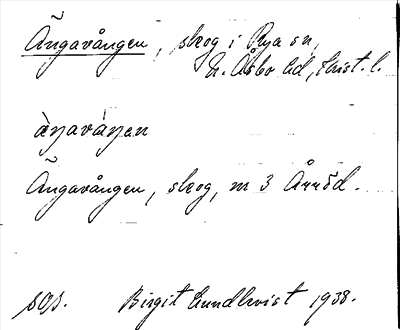 Ängavången, skog i Rya sn,
N. Åsbo hd, Krist. l.
àŋavá̀ŋen
Ängavången, skog, m 3 Årröd.
SOS. Birgit Lundkvist 1938.